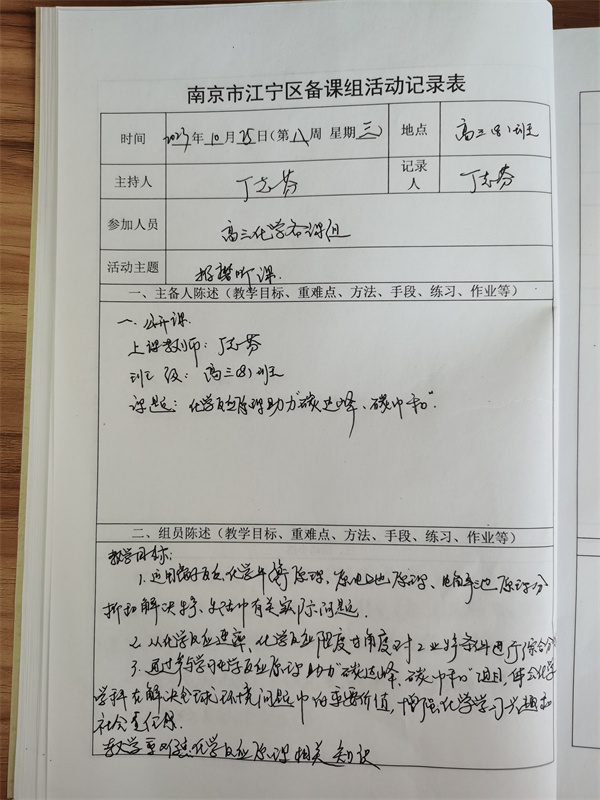 南京市江宁区备课组活动记录表
时间 2023年10月25日(第八周 星期三) 地点 高三(8)班
主持人 丁志芬 记录人 丁志芬
参加人员 高三化学备课组
活动主题 听课
一、主备人陈述(教学目标、重难点、方法、手段、练习、作业等)
一、公开课
上课教师:丁志芬
班级:高三(8)班
课题:化学反应原理助力"碳达峰、碳中和"
二、组员陈述(教学目标、重难点、方法、手段、练习、作业等)
教学目标:
1. 运用离子反应、化学平衡原理、原电池原理、电解池原理分
析和解决生产、生活中有关实际问题。
2. 从化学反应速率、化学反应限度等角度对工业生产条件进行综合分
3. 通过参与学习化学反应原理助力"碳达峰、碳中和"项目,体会化学
学科在解决全球环境问题中的重要价值,增强化学学习兴趣和
社会责任感
教学重难点:化学反应原理相关知识